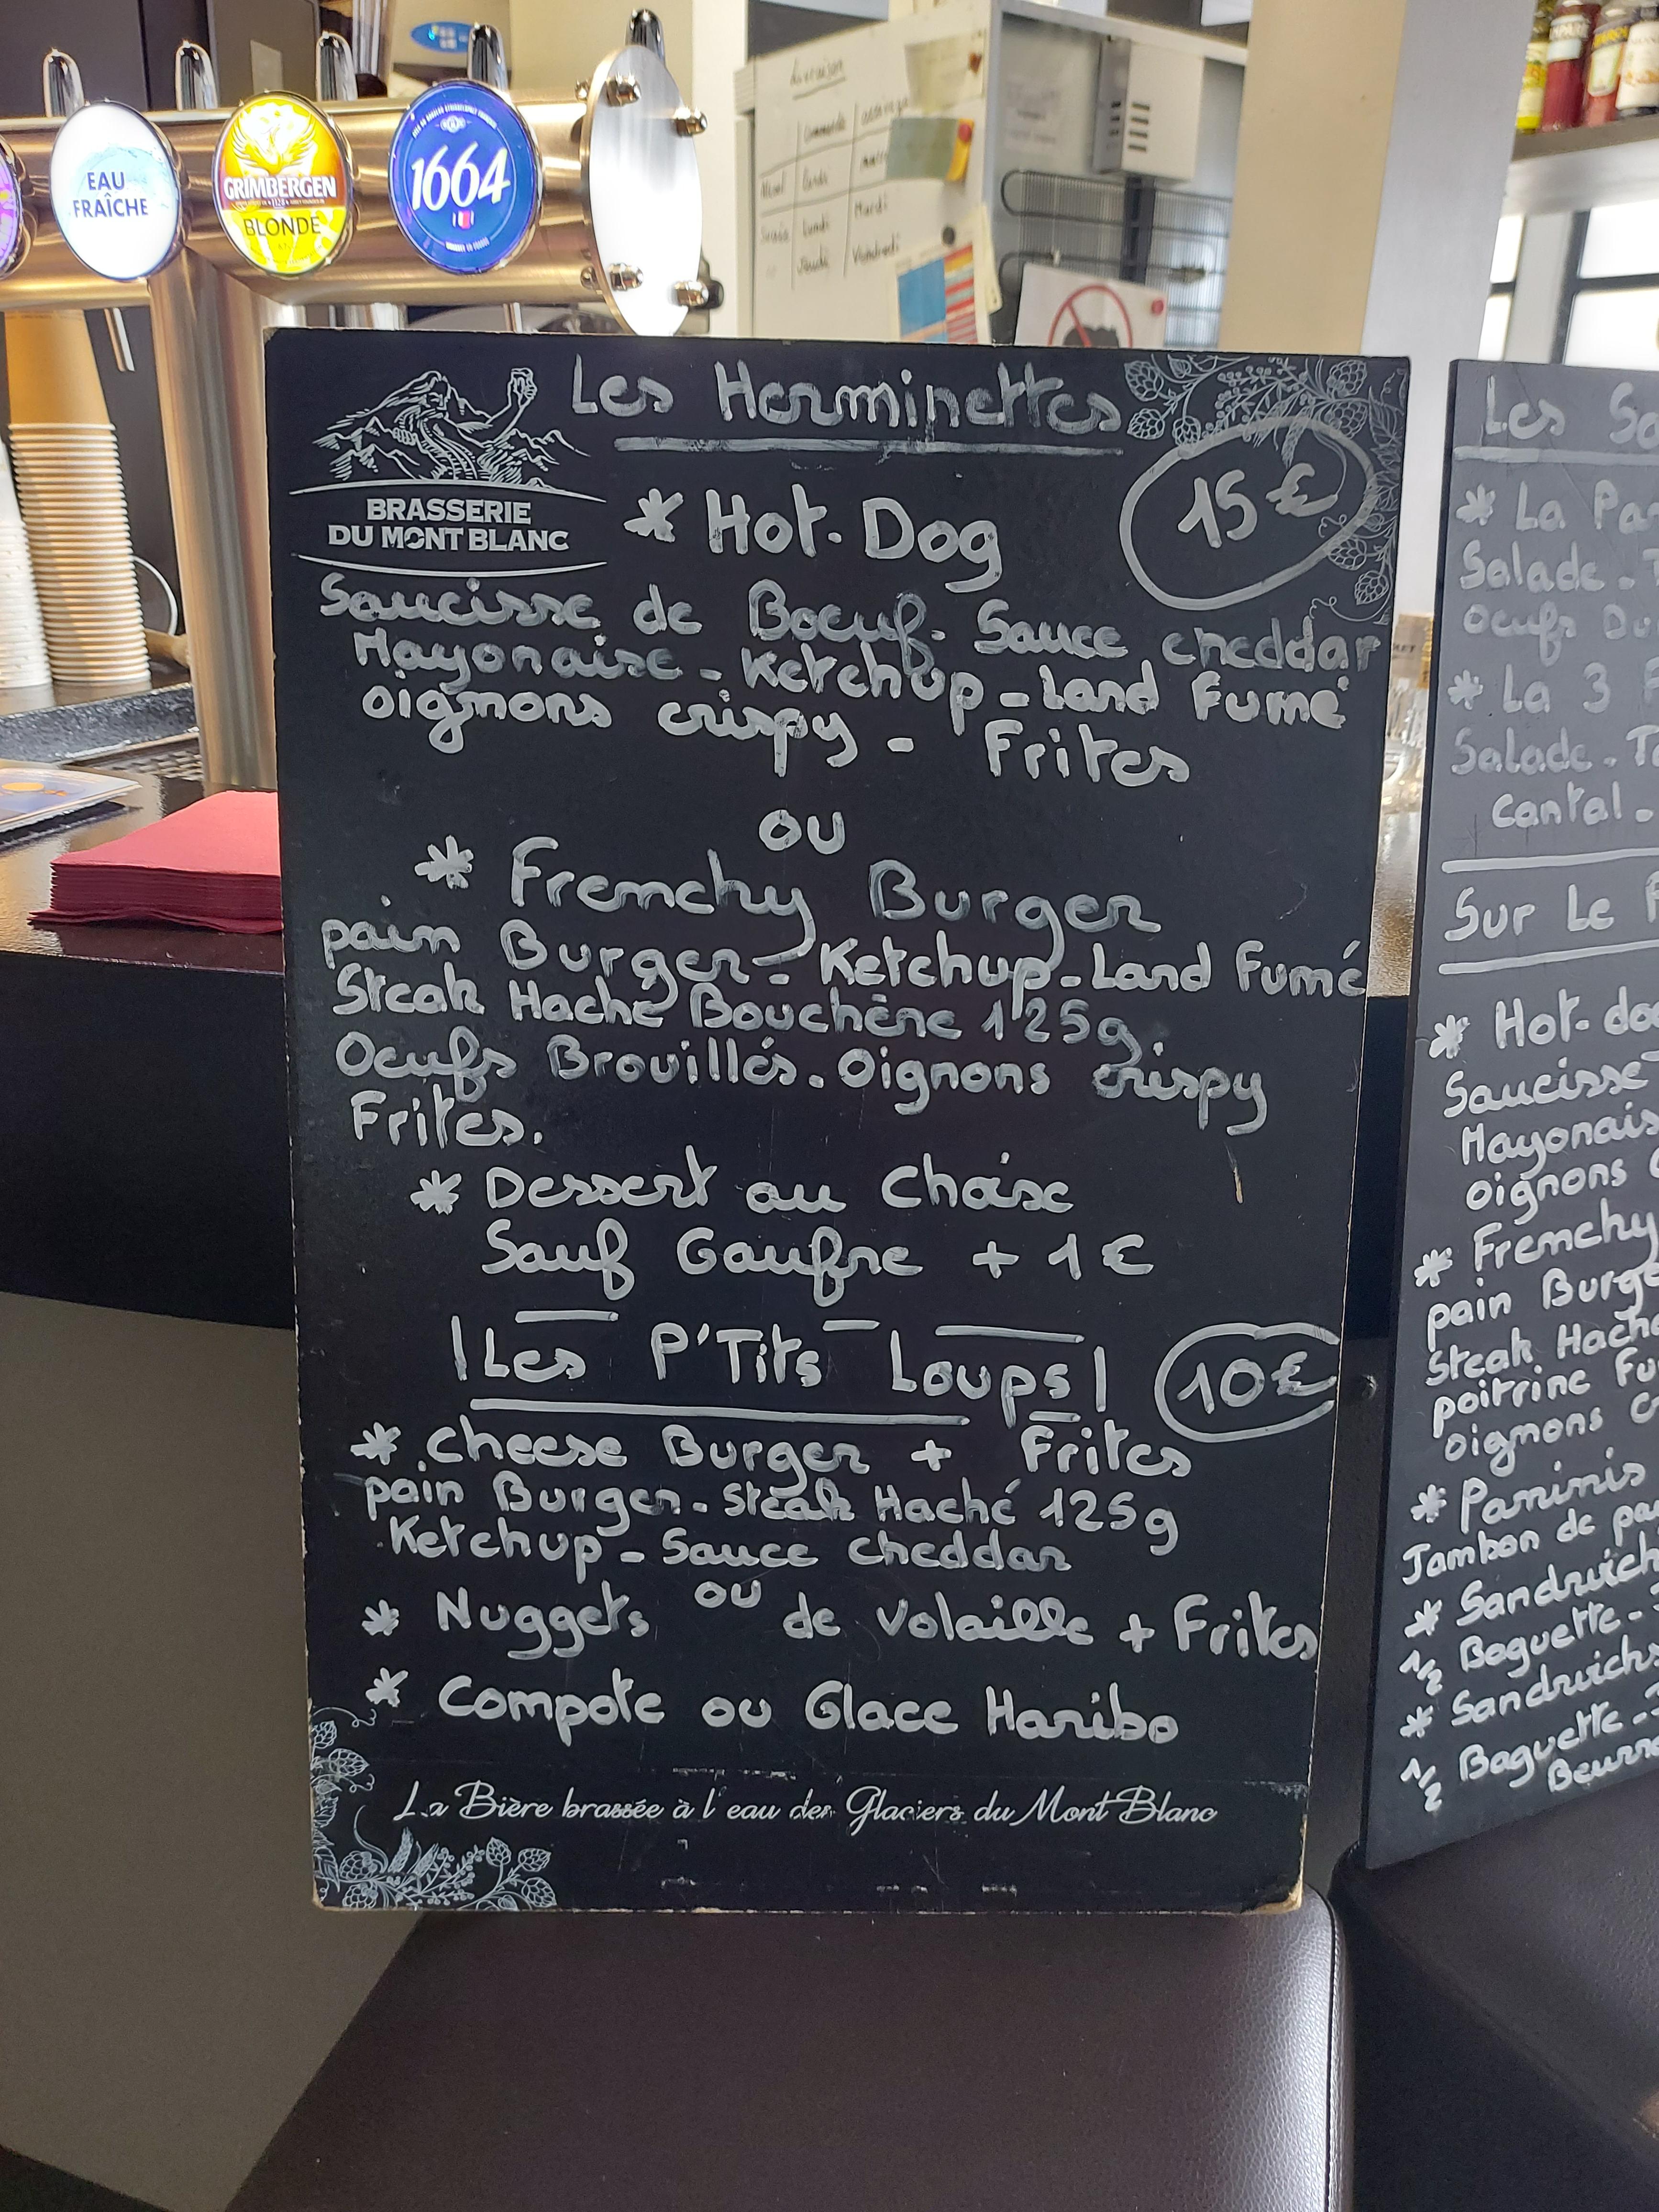 EAU
FRAÎCHE
GRIMBERGEN
BLONDE
1664
Livraison
Commande
Lundi
Mardi
Jeudi
Vendredi
Les Herminettes
BRASSERIE
DU MONT BLANC
* Hot-Dog
15€
Saucisse de Boeuf. Sauce cheddar
Mayonaise - Ketchup - Land Fumé
oignons crispy - Frites
ou
* Frenchy Burger
pain Burger - Ketchup - Land Fumé
Steak Haché Bouchère 125g
Oeufs Brouillés. Oignons crispy
Frites.
* Dessert au Choise
Sauf Gaufre + 1€
Les P'Tits Loups
10€
* Cheese Burger + Frites
pain Burger - Steak Haché 125g
Ketchup - Sauce cheddar
ou
* Nuggets de Volaille + Frites
* Compote ou Glace Haribo
La Bière brassée à l'eau des Glaciers du Mont Blanc
Les
* La
Salade -
Oeufs
* La 3
Salade - 
Cantal -
Sur Le
* Hot-
Saucisse
oignons
* Frenchy
pain
Steak
poitrine
oignons
* Paninis
Jambon de
* Sandwich
1/2 Baguette -
* Sandwichs
1/2 Baguette -